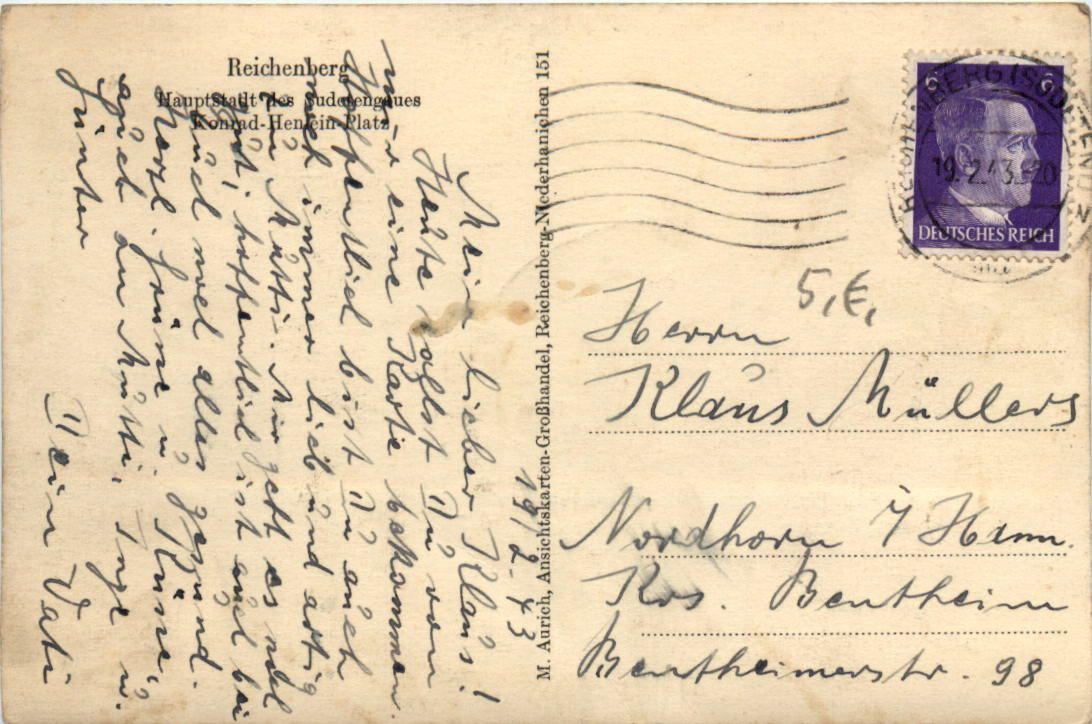 Reichenberg
Hauptstadt des Sudetengaues
Konrad-Henlein-Platz
19/2-43
Mein lieber Klaus!
Heute sollst Du von
mir eine Karte bekommen.
Hoffentlich bist Du auch
noch immer lieb und artig
zu Mutti. Mir geht es noch
gut, hoffentlich ist auch bei
Euch noch alles gesund.
Herzl. Grüße u. Küsse,
auch an Mutti, Inge u.
Günter
Dein Vati
M. Aurich, Ansichtskarten-Großhandel, Reichenberg-Niederhanichen 151
6 6
REICHENBERG (SUDETENGAU)
19.2.43.-20
DEUTSCHES REICH
5,€,
Herrn
Klaus Müllers
Nordhorn i/Hann.
Krs. Bentheim
Bentheimerstr. 98